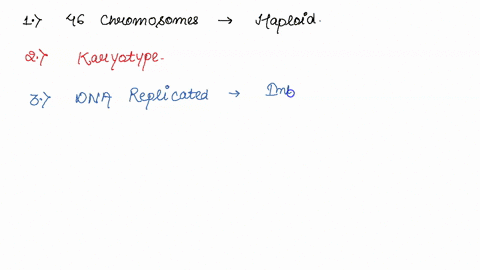 1.> 46 Chromosomes → Haploid.
2.> Karyotype.
3.> DNA Replicated →